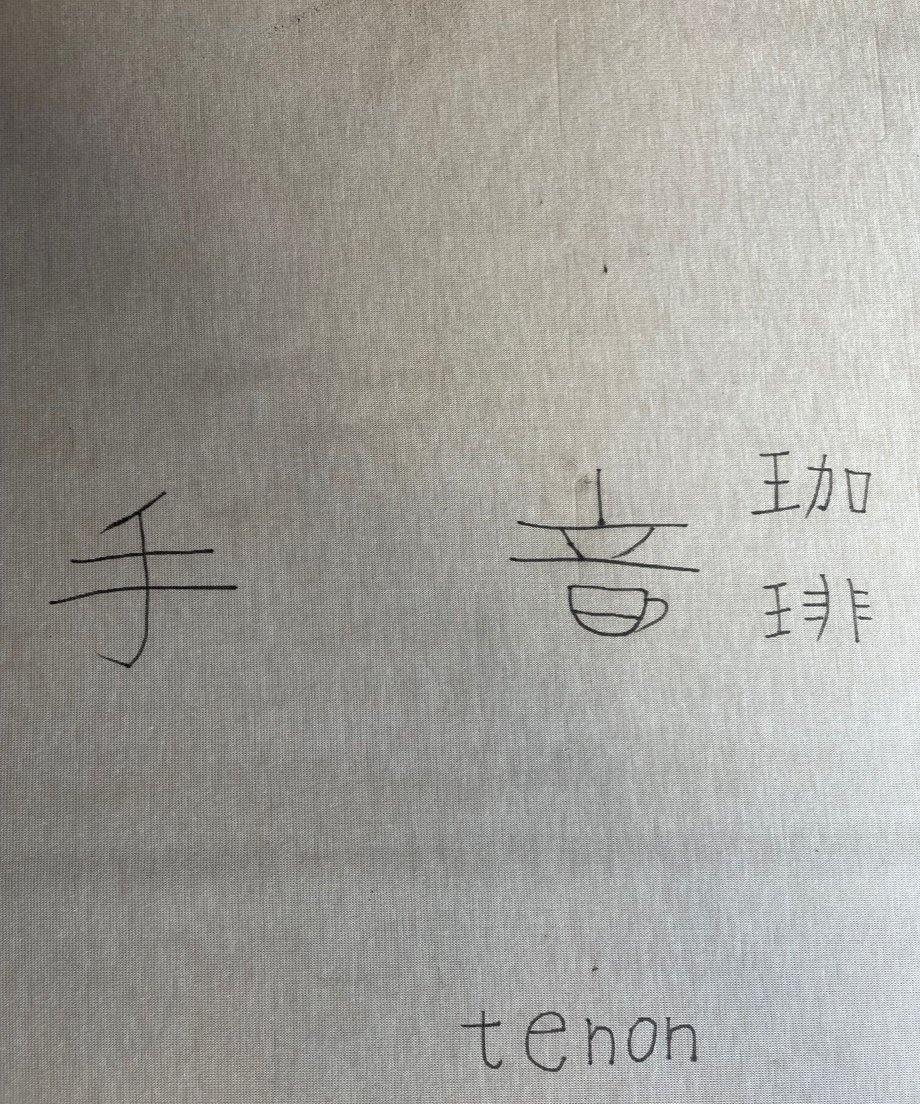 手音
珈琲
tenon